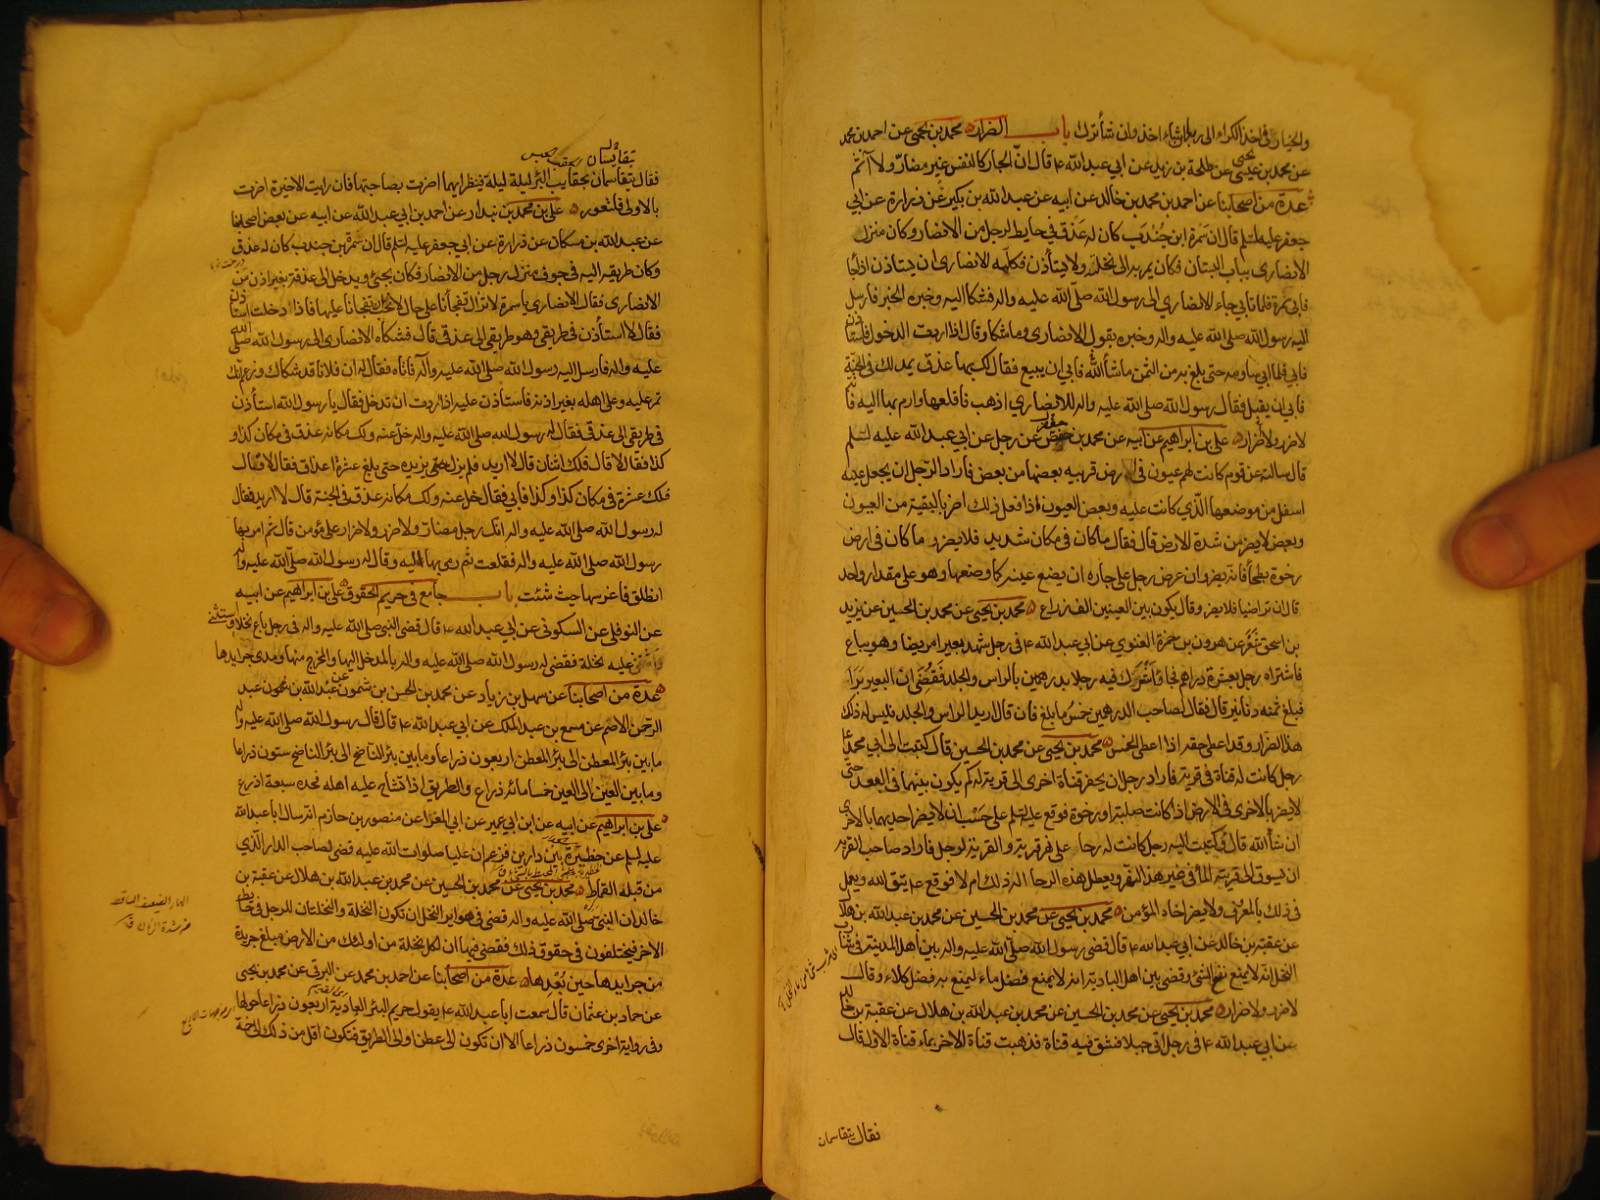 والخيار في اخذ الكراء الى ربها ان شاء اخذ وان شاء ترك باب الضرار محمد بن يحيى عن احمد بن محمد
عن محمد بن يحيى عن طلحة بن زيد عن ابي عبد الله ع قال ان الجار كالنفس غير مضار ولا آثم
عدة من اصحابنا عن احمد بن محمد بن خالد عن ابيه عن عبد الله بن بكير عن زرارة عن ابي
جعفر عليه السلم قال ان سمرة ابن جندب كان له عذق في حايط لرجل من الانصار وكان منزل
الانصاري بباب البستان فكان يمر به الى نخلته ولا يستأذن فكلمه الانصاري ان يستاذن اذا جاء
فابى سمرة فلما تابى جاء الانصاري الى رسول الله صلى الله عليه واله فشكا اليه وخبره الخبر فارسل
اليه رسول الله صلى الله عليه واله وخبره بقول الانصاري وما شكا وقال اذا اردت الدخول فاستاذن
فابى فلما ابى ساومه حتى بلغ به من الثمن ما شاء الله فابى ان يبيع فقال لك بها عذق يمد لك في الجنة
فابى ان يقبل فقال رسول الله صلى الله عليه واله للانصاري اذهب فاقلعها وارم بها اليه فانه
لا ضرر ولا ضرار علي بن ابراهيم عن ابيه عن محمد بن حفص عن رجل عن ابي عبد الله عليه السلم
قال سالته عن قوم كانت لهم عيون في ارض قريبة بعضها من بعض فاراد الرجل ان يجعل عينه
اسفل من موضعها الذي كانت عليه وبعض العيون اذا فعل ذلك اضر بالبقية من العيون
وبعض لا يضر من شدة الارض قال فقال ما كان في مكان شديد فلا يضر وما كان في ارض
رخوة بطحاء فانه يضر وان عرض رجل على جاره ان يضع عينه كما وضعها وهو على مقدار واحد
قال ان تراضيا فلا يضر وقال يكون بين العينين الف ذراع محمد بن يحيى عن محمد بن الحسين عن يزيد
بن اسحق شعر عن هرون بن حمزة الغنوي عن ابي عبد الله ع في رجل شهد بعيرا مريضا وهو يباع
فاشتراه رجل بعشرة دراهم فجاء واشرك فيه رجلا بدرهمين بالراس والجلد فقضي ان البعير برا
فبلغ ثمنه دنانير قال فقال لصاحب الدرهمين خمس ما بلغ فان قال اريد الراس والجلد فليس له ذلك
هذا الضرار وقد اعطى حقه اذا اعطى الخمس محمد بن يحيى عن محمد بن الحسين قال كتبت الى ابي محمد ع
رجل كانت له قناة في قرية فاراد رجل ان يحفر قناة اخرى الى قرية له كم يكون بينهما في البعد حتى
لا يضر بالاخرى في الارض اذا كانت صلبة او رخوة فوقع عليه السلم على حسب ان لا يضر احديهما بالاخرى
ان شاء الله قال وكتبت اليه رجل كانت له رحا على نهر قرية والقرية لرجل فاراد صاحب القرية
ان يسوق الى قريته الماء في غير هذا النهر ويعطل هذه الرحا اله ذلك ام لا فوقع ع يتق الله ويعمل
في ذلك بالمعروف ولا يضر اخاه المؤمن محمد بن يحيى عن محمد بن الحسين عن محمد بن عبد الله بن هلال
عن عقبة بن خالد عن ابي عبد الله ع قال قضى رسول الله صلى الله عليه واله بين اهل المدينة في مشارب
النخل انه لا يمنع نفع الشئ وقضى بين اهل البادية انه لا يمنع فضل ماء ليمنع به فضل كلاء وقال
لا ضرر ولا ضرار محمد بن يحيى عن محمد بن الحسين عن محمد بن عبد الله بن هلال عن عقبة بن خالد
عن ابي عبد الله ع في رجل اتى جبلا فشق فيه قناة فذهبت قناة الاخر بماء قناة الاول قال
فقال يتقاسمان
يتقايسان
فقال يتقاسمان بحقايب البئر ليلة ليلة فينظر ايهما اضرت بصاحبتها فان رايت الاخيرة اضرت
بالاولى فلتعور علي بن محمد بن بندار عن احمد بن ابي عبد الله عن ابيه عن بعض اصحابنا
عن عبد الله بن مسكان عن زرارة عن ابي جعفر عليه السلم قال ان سمرة بن جندب كان له عذق
وكان طريقه اليه في جوف منزل رجل من الانصار فكان يجئ ويدخل الى عذقه بغير اذن من
الانصاري فقال الانصاري يا سمرة لا تزال تفجأنا على حال لا نحب ان تفجأنا عليها فاذا دخلت استاذن
فقال لا استأذن في طريقي وهو طريقي الى عذقي قال فشكاه الانصاري الى رسول الله صلى الله
عليه واله فارسل اليه رسول الله صلى الله عليه وآله فاتاه فقال له ان فلانا قد شكاك وزعم انك
تمر عليه وعلى اهله بغير اذنه فاستاذن عليه اذا اردت ان تدخل فقال يا رسول الله استأذن
في طريقي الى عذقي فقال له رسول الله صلى الله عليه واله خل عنه ولك مكانه عذق في مكان كذا و
كذا فقال لا قال فلك اثنان قال لا اريد فلم يزل حتى يزيده حتى بلغ عشرة اعذاق فقال لا قال
فلك عشرة في مكان كذا وكذا فابى فقال خل عنه ولك مكانه عذق في الجنة قال لا اريد فقال
له رسول الله صلى الله عليه واله انك رجل مضار ولا ضرر ولا ضرار على مؤمن قال ثم امر بها
رسول الله صلى الله عليه واله فقلعت ثم رمى بها اليه وقال له رسول الله صلى الله عليه واله
انطلق فاغرسها حيث شئت باب جامع في حريم الحقوق علي بن ابراهيم عن ابيه
عن النوفلي عن السكوني عن ابي عبد الله ع قال قضى النبي صلى الله عليه واله في رجل باع نخلا واستثنى
عليه نخلة فقضى له رسول الله صلى الله عليه واله بالمدخل اليها والمخرج منها ومدى جرايدها
عدة من اصحابنا عن سهل بن زياد عن محمد بن الحسن بن شمون عن عبد الله بن عبد
الرحمن الاصم عن مسمع بن عبد الملك عن ابي عبد الله ع قال قال رسول الله صلى الله عليه واله
ما بين بئر المعطن الى بئر المعطن اربعون ذراعا وما بين بئر الناضح الى بئر الناضح ستون ذراعا
وما بين العين الى العين خمسمائة ذراع والطريق اذا تشاح عليه اهله فحده سبعة اذرع
علي بن ابراهيم عن ابيه عن ابن ابي عمير عن ابي المغرا عن منصور بن حازم انه سال ابا عبد الله
عليه السلم عن حظيرة بين دارين فزعم ان عليا صلوات الله عليه قضى لصاحب الدار الذي
من قبله القماط محمد بن يحيى عن محمد بن الحسين عن محمد بن عبد الله بن هلال عن عقبة بن
خالد ان النبي صلى الله عليه واله قضى في هواير النخل ان تكون النخلة والنخلتان للرجل في حايط
الاخر فيختلفون في حقوق ذلك فقضى فيها ان لكل نخلة من اولئك من الارض مبلغ جريدة
من جرايدها حين بعدها عدة من اصحابنا عن احمد بن محمد عن البرقي عن محمد بن يحيى
عن حماد بن عثمان قال سمعت ابا عبد الله ع يقول حريم البئر العادية اربعون ذراعا حولها
وفي رواية اخرى خمسون ذراعا الا ان تكون الى عطن او الى الطريق فتكون اقل من ذلك الى خمسة